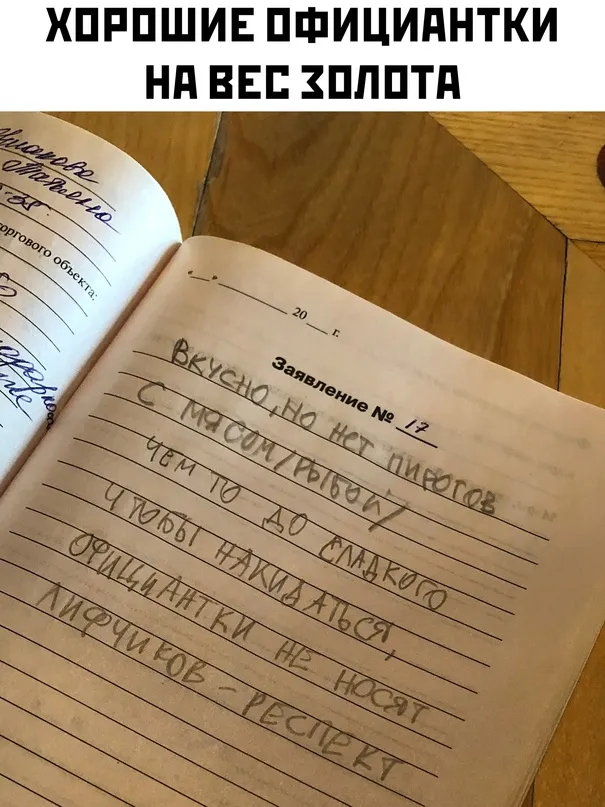 ХОРОШИЕ ОФИЦИАНТКИ
НА ВЕС ЗОЛОТА
торгового объекта:
" " 20 г.
Заявление № 17
ВКУСНО, НО НЕТ ПИРОГОВ
С МЯСОМ/РЫБОЙ/
ЧЕМ ТО ДО СЛАДКОГО
ЧТОБЫ НАКИДАТЬСЯ,
ОФИЦИАНТКИ НЕ НОСЯТ
ЛИФЧИКОВ – РЕСПЕКТ